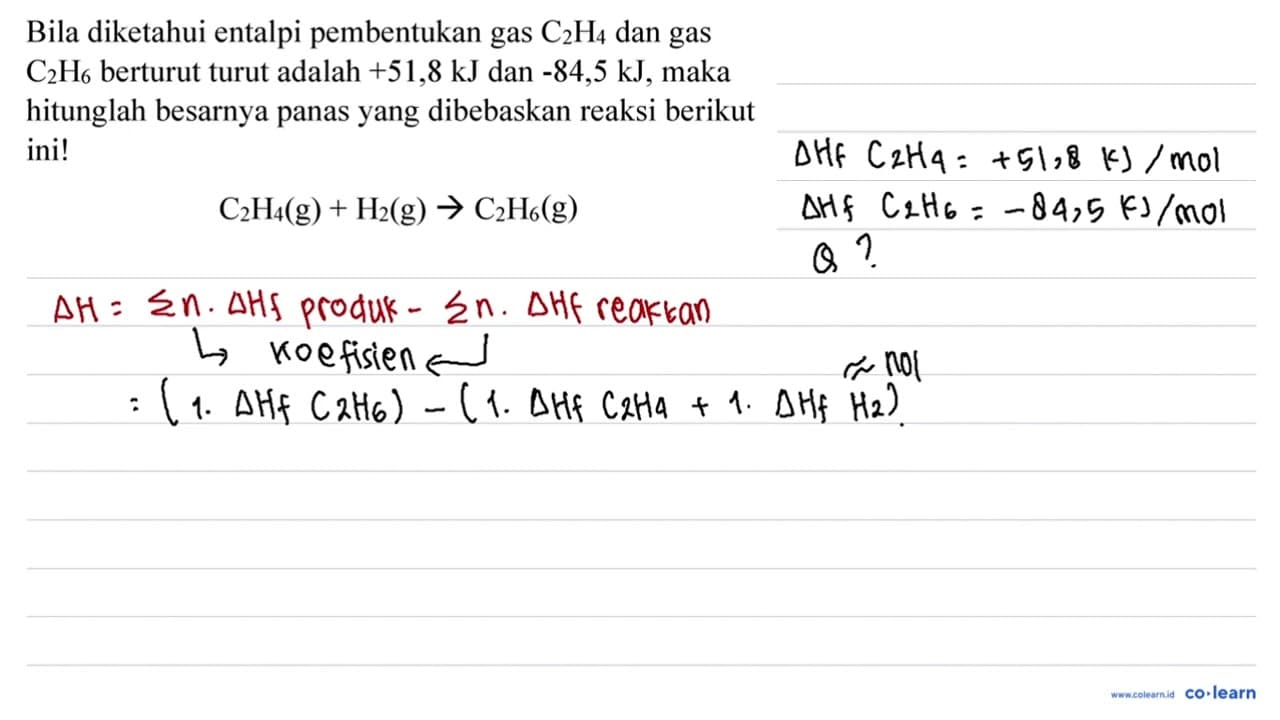 Bila diketahui entalpi pembentukan gas C₂H₄ dan gas
C₂H₆ berturut turut adalah +51,8 kJ dan -84,5 kJ, maka
hitunglah besarnya panas yang dibebaskan reaksi berikut
ini!
C₂H₄(g) + H₂(g) → C₂H₆(g)
ΔHf C2H4 = +51,8 KJ/mol
ΔHf C2H6 = -84,5 KJ/mol
Q ?
ΔH = Σn. ΔHf produk - Σn. ΔHf reaktan
↳ Koefisien ↵
≈ nol
= (1. ΔHf C2H6) - (1. ΔHf C2H4 + 1. ΔHf H2)
www.colearn.id co·learn